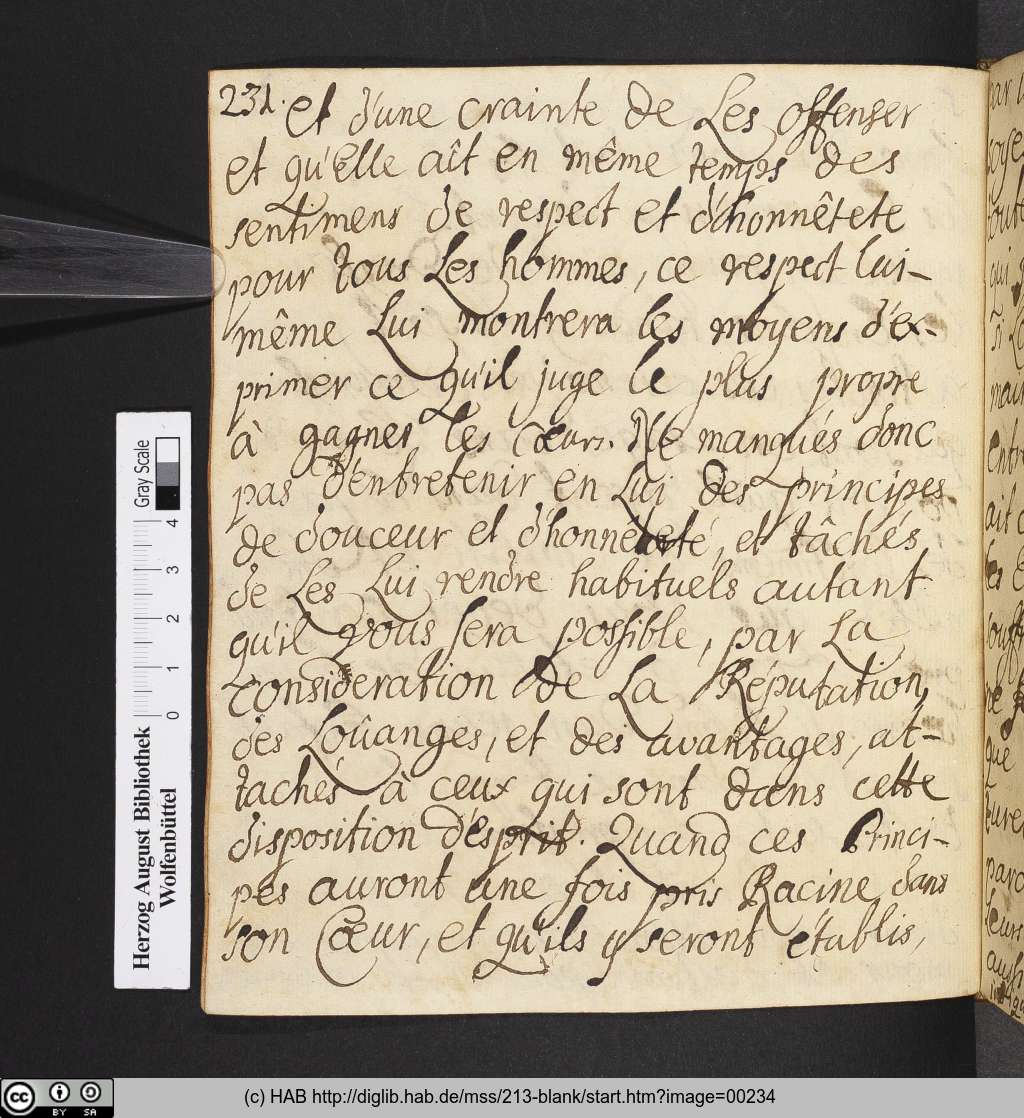 231. et d'une crainte de Les offenser
et qu'Elle aît en même temps des
sentimens de respect et d'honnêtete
pour tous Les hommes, ce respect lui-
même Lui montrera les moyens d'ex-
primer ce qu'il juge le plus propre
à gagner les Cœurs. Ne manqués donc
pas d'entretenir en Lui des principes
de douceur et d'honnêteté, et tâchés
de Les Lui rendre habituels autant
qu'il vous sera possible, par La
Consideration de La Réputation,
des Loûanges, et des avantages, at-
tachés à ceux qui sont dans cette
disposition d'esprit. Quand ces Princi-
pes auront une fois pris Racine dans
son Cœur, et qu'ils y seront établis,
Herzog August Bibliothek
Wolfenbüttel
Gray Scale
0 1 2 3 4
cc BY SA
(c) HAB http://diglib.hab.de/mss/213-blank/start.htm?image=00234